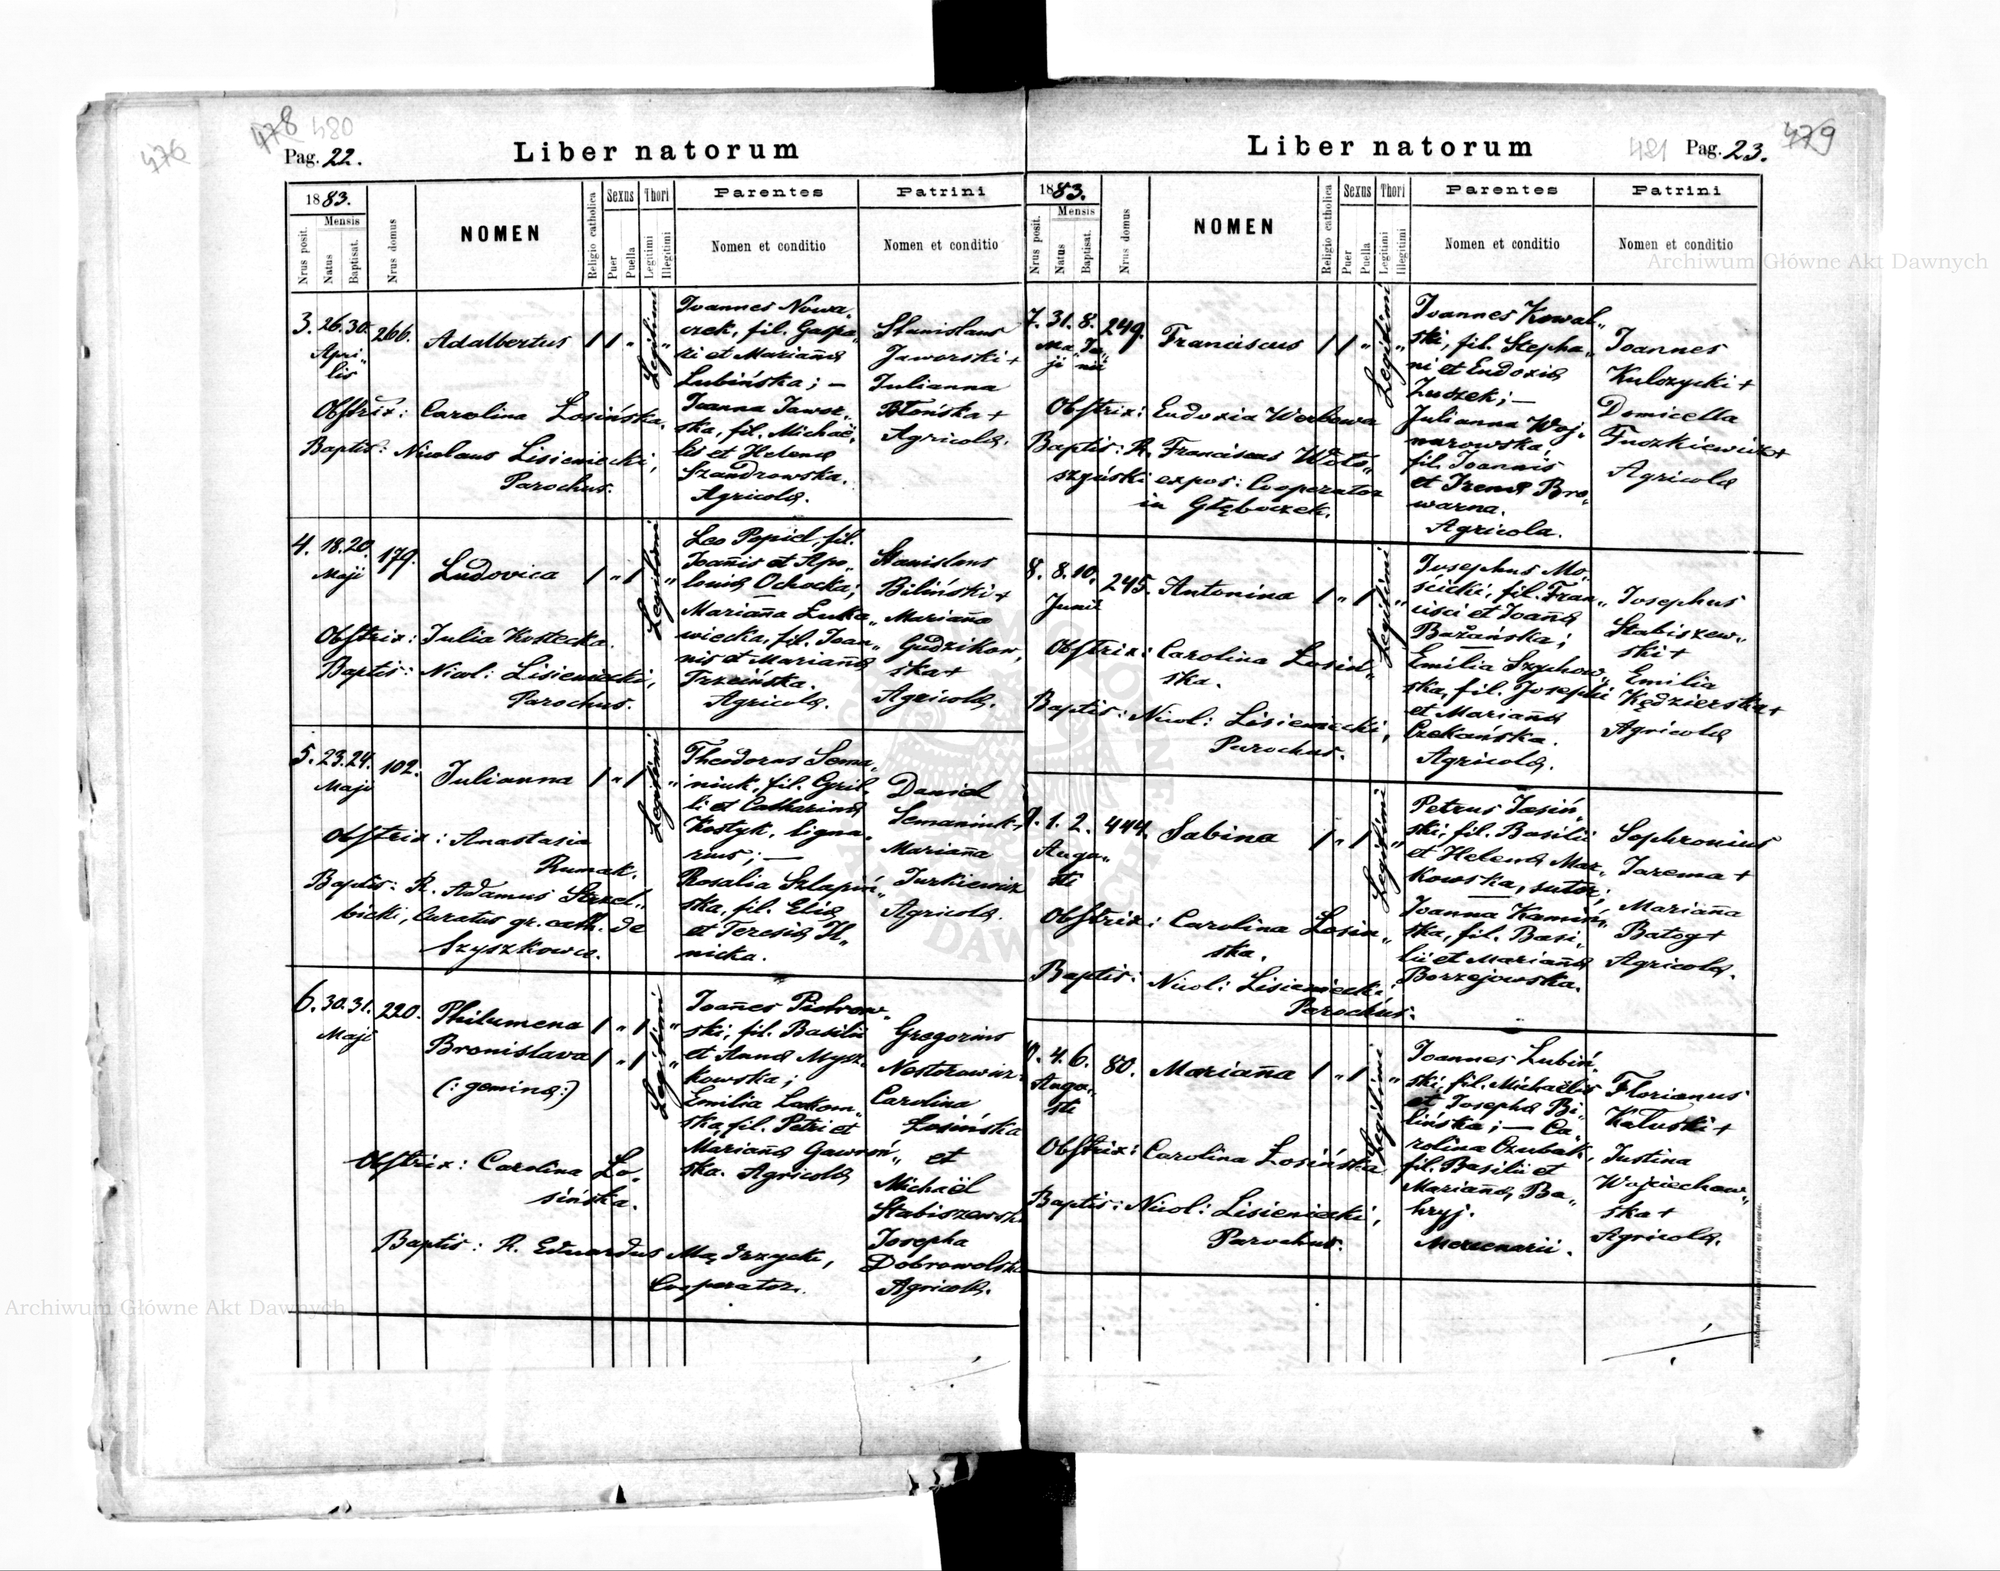 476
478 480
Pag. 22.
Liber natorum
1883.
Mensis
Nrus posit.
Natus
Baptisat.
Nrus domus
NOMEN
Religio catholica
Sexus
Puer
Puella
Thori
Legitimi
Illegitimi
Parentes
Nomen et conditio
Patrini
Nomen et conditio
3. 26. 30. 266. Adalbertus
Apri„
lis
Obstrix: Carolina Łosińska.
Baptis: Nicolaus Lisieniecki,
Parochus.
Legitimi
Joannes Nowa„
czek, fil. Gaspa„
ri et Mariañæ
Lubińska; —
Joanna Jawor„
ska, fil. Michaë„
lis et Helenæ
Szandrowska.
Agricolæ.
Stanislaus
Jaworski +
Julianna
Błońska +
Agricolæ.
4. 18. 20. 179. Ludovica
Maji
Obstrix: Julia Kostecka.
Baptis: Nicol: Lisieniecki,
Parochus.
Legitimi
Leo Popiel, fil.
Joañis et Apo„
loniæ Ochocka;
Mariaña Łuka„
wiecka, fil. Joan„
nis et Mariañæ
Trzcińska.
Agricolæ.
Stanislaus
Biliński +
Mariaña
Gudzikow„
ska +
Agricolæ.
5. 23. 24. 102. Julianna
Maji
Obstrix: Anastasia
Rumak.
Baptis: R. Adamus Strzel„
bicki, Curatus gr. cath. de
Szyszkowce.
Legitimi
Theodorus Sema„
niuk, fil. Cyril„
li et Catharinæ
Kostyk, ligna„
rius; —
Rosalia Szlapiń„
ska, fil. Eliæ
et Teresiæ Il„
nicka.
Daniel
Semaniuk +
Mariaña
Jurkiewicz
Agricolæ.
6. 30. 31. 220. Philumena
Maji
Bronislava
(: geminæ :)
Obstrix: Carolina Ło„
sińska.
Baptis: R. Eduardus Mądrzycki,
Cooperator.
Legitimi
Joañes Piotrow„
ski, fil. Basilii
et Annæ Mysz„
kowska;
Emilia Łakom„
ska, fil. Petri et
Mariañæ Gawroń„
ska. Agricolæ
Gregorius
Nestorowicz
Carolina
Łosińska
et
Michaël
Stabiszewski
Josepha
Dobrowolska
Agricolæ.
Liber natorum
481 Pag. 23. 479
1883.
Mensis
Nrus posit.
Natus
Baptisat.
Nrus domus
NOMEN
Religio catholica
Sexus
Puer
Puella
Thori
Legitimi
Illegitimi
Parentes
Nomen et conditio
Patrini
Nomen et conditio
7. 31. 8. 249. Franciscus
Ma„ Ju„
ji nii
Obstrix: Eudoxia Werbowa
Baptis: R. Franciscus Woło„
szyński expos: Cooperator
in Głęboczek.
Legitimi
Joannes Kowal„
ski, fil. Stepha„
ni et Eudoxiæ
Zuszek; —
Julianna Woj„
narowska,
fil. Joannis
et Irenæ Bro„
warna.
Agricola.
Joannes
Kulczycki +
Domicella
Fuszkiewicz +
Agricolæ
8. 8. 10. 245. Antonina
Junii
Obstrix: Carolina Łosiń„
ska.
Baptis: Nicol: Lisieniecki,
Parochus.
Legitimi
Josephus Mo„
ścicki, fil. Fran„
cisci et Joañæ
Bażańska;
Emilia Szychow„
ska, fil. Josephi
et Mariañæ
Czekańska.
Agricolæ.
Josephus
Stabiszew„
ski +
Emilia
Kędzierska +
Agricolæ
9. 1. 2. 444. Sabina
Augu„
sti
Obstrix: Carolina Łosiń„
ska.
Baptis: Nicol: Lisieniecki
Parochus.
Legitimi
Petrus Jasiń„
ski, fil. Basilii
et Helenæ Mar„
kowska, sutor;
Joanna Kamiń„
ska, fil. Basi„
lii et Mariañæ
Borzejowska.
Sophronius
Jarema +
Mariaña
Batog +
Agricolæ.
10. 4. 6. 80. Mariaña
Augu„
sti
Obstrix: Carolina Łosińska
Baptis: Nicol: Lisieniecki,
Parochus.
Legitimi
Joannes Lubiń„
ski, fil. Michaëlis
et Josephæ Bi„
lińska; — Ca„
rolina Czubak,
fil. Basilii et
Mariañæ Ba„
hryj.
Mercenarii.
Florianus
Kałuski +
Justina
Wojciechow„
ska +
Agricolæ.
Nakładem Drukarni Ludowej we Lwowie.
Archiwum Główne Akt Dawnych
Archiwum Główne Akt Dawnych